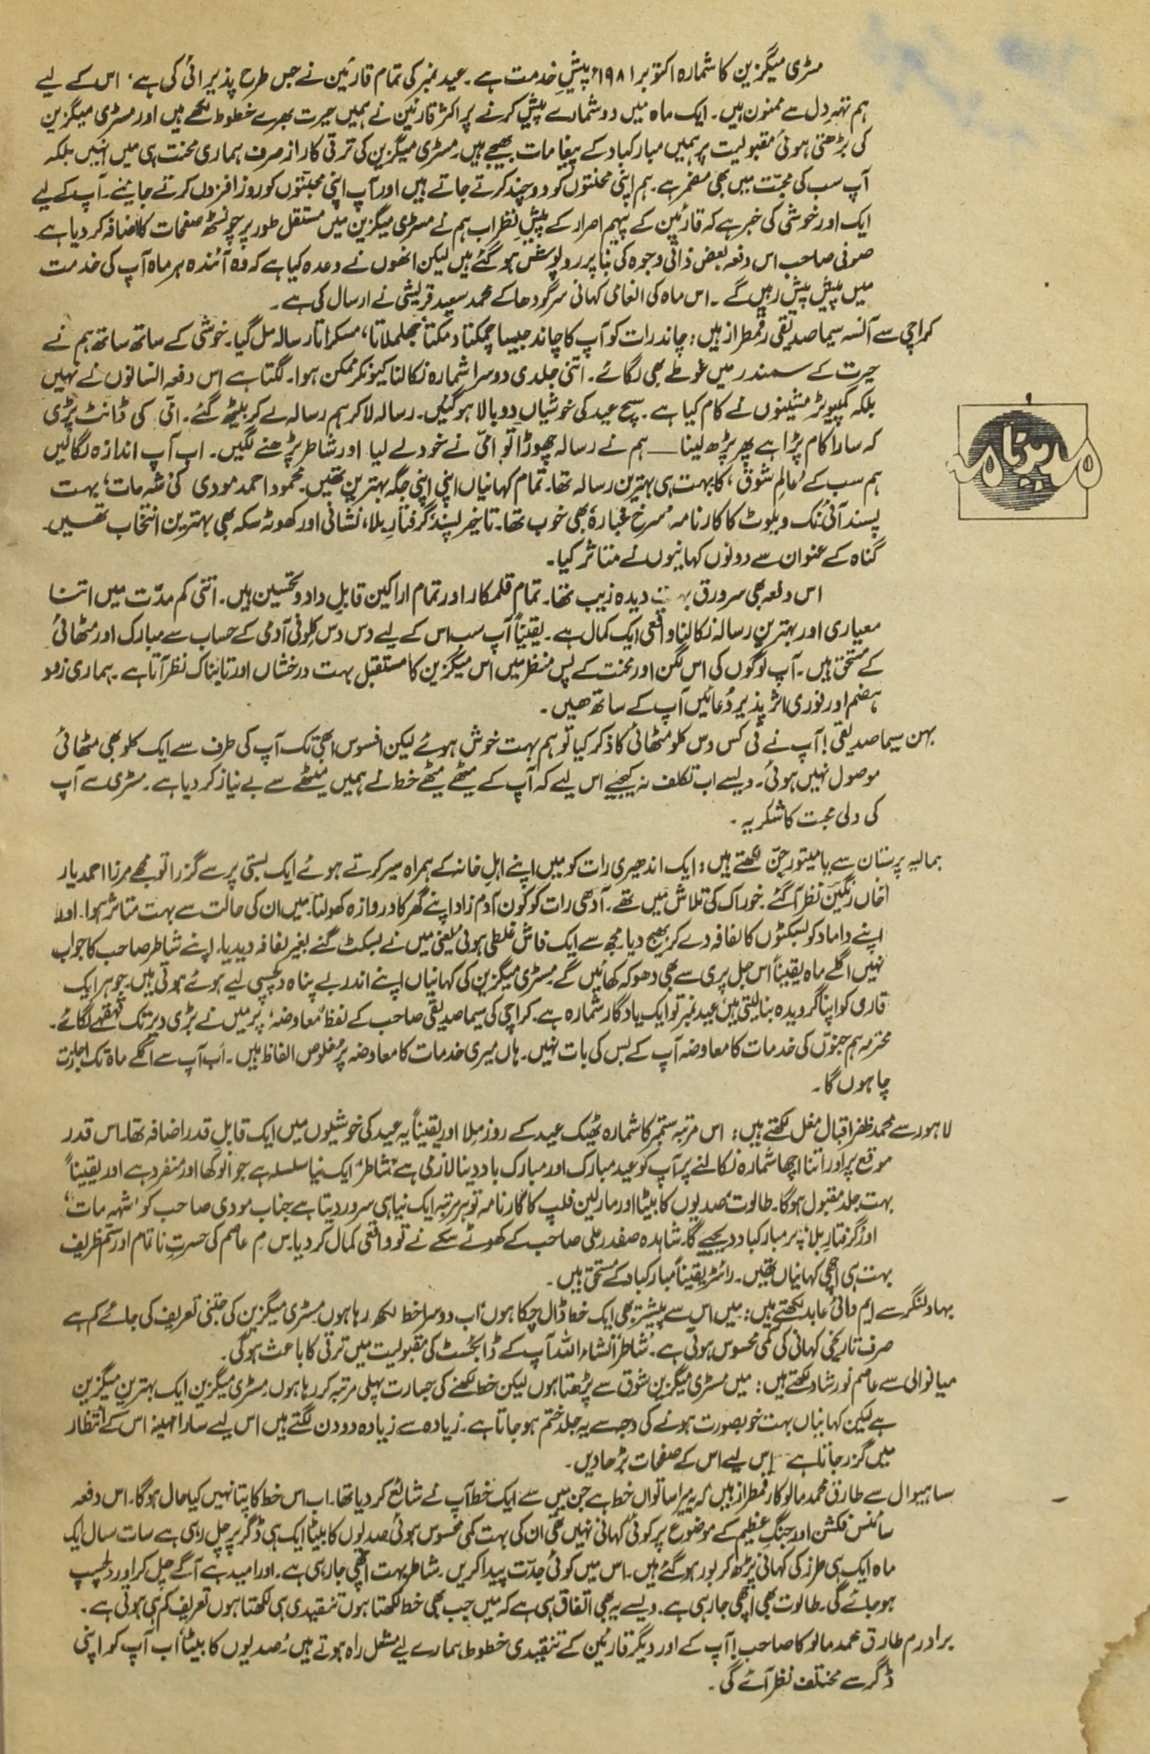 مسٹری میگزین کا شمارہ اکتوبر ۱۹۸۱ء پیشِ خدمت ہے۔ عید نمبر کی تمام قارئین نے جس طرح پذیرائی کی ہے، اس کے لیے
ہم تہہ دل سے ممنون ہیں۔ ایک ماہ میں دو شمارے پیش کرنے پر اکثر قارئین نے ہمیں حیرت بھرے خطوط لکھے ہیں اور مسٹری میگزین
کی بڑھتی ہوئی مقبولیت پر ہمیں مبارکباد کے پیغامات بھیجے ہیں۔ مسٹری میگزین کی ترقی کا راز صرف ہماری محنت ہی میں نہیں بلکہ
آپ سب کی محبت میں بھی مضمر ہے۔ ہم اپنی محنتوں کو دوچند کرتے جاتے ہیں اور آپ اپنی محبتوں کو روز افزوں کرتے جائیے۔ آپ کے لیے
ایک اور خوشی کی خبر ہے کہ قارئین کے پیہم اصرار کے پیشِ نظر اب ہم نے مسٹری میگزین میں مستقل طور پر چونسٹھ صفحات کا اضافہ کر دیا ہے
صوفی صاحب اس دفعہ بعض ذاتی وجوہ کی بنا پر روپوش ہو گئے ہیں لیکن انھوں نے وعدہ کیا ہے کہ وہ آئندہ ہر ماہ آپ کی خدمت
میں پیش پیش رہیں گے۔ اس ماہ کی انعامی کہانی سرگودھا کے محمد سعید قریشی نے ارسال کی ہے۔
کراچی سے آنسہ سیما صدیقی رقمطراز ہیں: چاند رات کو آپ کا چاند جیسا چمکتا دمکتا جھلملاتا، مسکراتا رسالہ مل گیا۔ خوشی کے ساتھ ساتھ ہم نے
حیرت کے سمندر میں غوطے بھی لگائے۔ اتنی جلدی دوسرا شمارہ نکالنا کیونکر ممکن ہوا۔ لگتا ہے اس دفعہ انسانوں نے نہیں
بلکہ کمپیوٹر مشینوں نے کام کیا ہے۔ سچ عید کی خوشیاں دوبالا ہو گئیں۔ رسالہ لا کر ہم رسالہ لے کر بیٹھ گئے۔ امّی کی ڈانٹ پڑی
کہ سارا کام پڑا ہے پھر پڑھ لینا — ہم نے رسالہ چھوڑا تو امّی نے خود لے لیا اور شاطر پڑھنے لگیں۔ اب آپ اندازہ لگا لیں
ہم سب کے 'عالمِ شوق' کا بہت ہی بہترین رسالہ تھا۔ تمام کہانیاں اپنی اپنی جگہ بہترین تھیں۔ محمود احمد مودی کی 'شہ مات' بہت
پسند آئی نک ویلوٹ کا کارنامہ 'سرخ غبارہ' بھی خوب تھا۔ تاخیر پسند، گرفتارِ بلا، نشانی اور کھوٹہ سکہ بھی بہترین انتخاب تھیں۔
گناہ کے عنوان سے دونوں کہانیوں نے متاثر کیا۔
اس دفعہ بھی سرورق بہت دیدہ زیب تھا۔ تمام قلمکار اور تمام اراکین قابلِ داد و تحسین ہیں۔ اتنی کم مدّت میں اتنا
معیاری اور بہترین رسالہ نکالنا واقعی ایک کمال ہے۔ یقیناً آپ سب اس کے لیے دس دس کلو فی آدمی کے حساب سے مبارک اور مٹھائی
کے مستحق ہیں۔ آپ لوگوں کی اس لگن اور محنت کے پس منظر میں اس میگزین کا مستقبل بہت درخشاں اور تابناک نظر آتا ہے۔ ہماری زود
ہضم اور فوری اثر پذیر دُعائیں آپ کے ساتھ ہیں۔
بہن سیما صدیقی! آپ نے فی کس دس کلو مٹھائی کا ذکر کیا تو ہم بہت خوش ہوئے لیکن افسوس ابھی تک آپ کی طرف سے ایک کلو بھی مٹھائی
موصول نہیں ہوئی۔ ویسے اب تکلف نہ کیجیے اس لیے کہ آپ کے میٹھے میٹھے خط نے ہمیں میٹھے سے بے نیاز کر دیا ہے۔ مسٹری سے آپ
کی دلی محبت کا شکریہ۔
ہمالیہ پرستان سے جن لکھتے ہیں: ایک اندھیری رات کو میں اپنے اہلِ خانہ کے ہمراہ سیر کرتے ہوئے ایک بستی پر سے گزرا تو مجھے مرزا احمد یار
خاں رنگین نظر آ گئے۔ خوراک کی تلاش میں تھے۔ آدھی رات کو کون آدم زاد اپنے گھر کا دروازہ کھولتا۔ میں ان کی حالت سے بہت متاثر ہوا۔ اور
اپنے داماد کو بسکٹوں کا لفافہ دے کر بھیج دیا۔ مجھ سے ایک فاش غلطی ہوئی یعنی میں نے بسکٹ گنے بغیر لفافہ دیدیا۔ اپنے شاطر صاحب کا جواب
نہیں اگلے ماہ یقیناً اس جل پری سے بھی دھوکہ کھائیں گے۔ مسٹری میگزین کی کہانیاں اپنے اندر بے پناہ دلچسپی لیے ہوئے ہوتی ہیں۔ جو ہر ایک
قاری کو اپنا گرویدہ بنا لیتی ہیں عید نمبر تو ایک یادگار شمارہ ہے۔ کراچی کی سیما صدیقی صاحب کے لفظ 'معاوضہ' پر میں نے بڑی دیر تک قہقہے لگائے۔
محترمہ ہم جنّوں کی خدمات کا معاوضہ آپ کے بس کی بات نہیں۔ ہاں میری خدمات کا معاوضہ پر خلوص الفاظ ہیں۔ اب آپ سے اگلے ماہ تک اجازت
چاہوں گا۔
لاہور سے محمد ظفر اقبال مغل لکھتے ہیں: اس مرتبہ ستمبر کا شمارہ ٹھیک عید کے روز ملا اور یقیناً یہ عید کی خوشیوں میں ایک قابلِ قدر اضافہ تھا۔ اس قدر
موقع پر اور اتنا اچھا شمارہ نکالنے پر آپ کو عید مبارک اور مبارک باد دینا لازمی ہے 'شاطر' ایک نیا سلسلہ ہے جو انوکھا اور منفرد ہے اور یقیناً
بہت جلد مقبول ہوگا۔ طالوت، صدیوں کا بیٹا اور مارلین فلپ کا کارنامہ تو ہر مرتبہ ایک نیا ہی سرور دیتا ہے جناب مودی صاحب کو 'شہہ مات'
اور 'گرفتارِ بلا' پر مبارکباد دیجیے گا۔ شاہدہ صفدر علی صاحب کے کھوٹے سکے نے تو واقعی کمال کر دیا۔ س م عاصم کی حسرتِ ناتمام اور ستم ظریف
بہت ہی اچھی کہانیاں تھیں۔ رائٹر یقیناً مبارکباد کے مستحق ہیں۔
بہاولنگر سے ایم عابد لکھتے ہیں: میں اس سے پیشتر بھی ایک خط ڈال چکا ہوں، اب دوسرا خط لکھ رہا ہوں مسٹری میگزین کی جتنی تعریف کی جائے کم ہے
صرف تاریخی کہانی کی کمی محسوس ہوتی ہے۔ 'شاطر' انشاء اللہ آپ کے ڈائجسٹ کی مقبولیت میں ترقی کا باعث ہوگی۔
میانوالی سے عاصم نورشاد لکھتے ہیں: میں مسٹری میگزین شوق سے پڑھتا ہوں لیکن خط لکھنے کی جسارت پہلی مرتبہ کر رہا ہوں۔ مسٹری میگزین ایک بہترین میگزین
ہے لیکن کہانیاں بہت خوبصورت ہونے کی وجہ سے یہ جلد ختم ہو جاتا ہے۔ زیادہ سے زیادہ دو دن لگتے ہیں اس لیے سارا مہینہ اس کے انتظار
میں گزر جاتا ہے اس لیے اس کے صفحات بڑھا دیں۔
ساہیوال سے طارق محمد مالوکا رقمطراز ہیں کہ یہ میرا ساتواں خط ہے جن میں سے ایک خط آپ نے شائع کر دیا تھا۔ اب اس خط کا پتا نہیں کیا حال ہوگا۔ اس دفعہ
سائنس فکشن اور جنگِ عظیم کے موضوع پر کوئی کہانی نہیں تھی ان کی بہت کمی محسوس ہوئی صدیوں کا بیٹا ایک ہی ڈگر پر چل رہی ہے سات سال ایک
ماہ ایک ہی طرز کی کہانی پڑھ کر بور ہو گئے ہیں۔ اس میں کوئی جدّت پیدا کریں۔ شاطر بہت اچھی جا رہی ہے۔ اور امید ہے آگے چل کر اور دلچسپ
ہو جائے گی۔ طالوت بھی اچھی جا رہی ہے۔ ویسے یہ بھی اتفاق ہی ہے کہ میں جب بھی خط لکھتا ہوں تنقیدی ہی لکھتا ہوں تعریف کم ہی ہوتی ہے۔
برادرم طارق محمد مالوکا صاحب! آپ کے اور دیگر قارئین کے تنقیدی خطوط ہمارے لیے مشعلِ راہ ہوتے ہیں 'صدیوں کا بیٹا' اب آپ کو اپنی
ڈگر سے مختلف نظر آئے گی۔